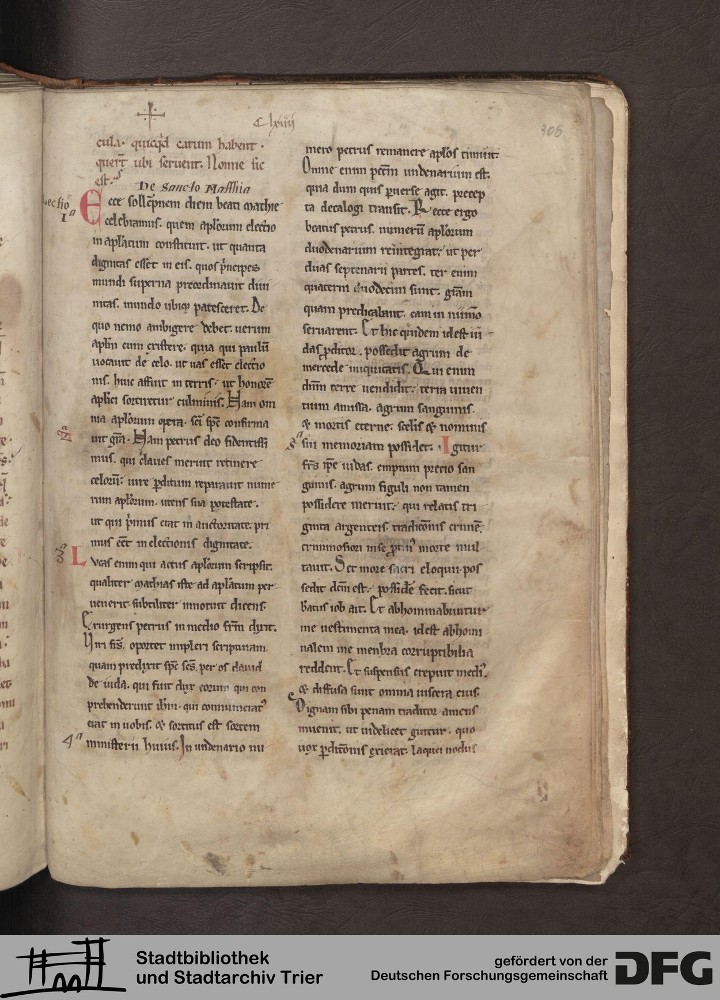 C lxiiii
306
cula. quicq̇d carum habent.
quert ubi seruent. Nonne sic
est.
De Sancto Mathia
Lectio
Iᵃ
Ecce sollẽpnem diem beati mathie
celebramus. quem apłorum electio
in apłatum constituit. ut quanta
dignitas esset in eis. quos p̃ncipes
mundi superna preordinauit diui
nitas. mundo ubiq; patesceret. De
quo nemo ambigere debet. uerum
aplm eum existere. quia qui paulū
uocauit de celo. ut uas esset electio
nis. huic affuit in terris. ut honorē
aplici sortiretur culminis. Nam om
nia apłorum opera. sc̄i sp̄c confirma
2ᵃ
uit gr̄a. Nam petrus deo fidentissi
mus. qui claues meruit retinere
celorū. iure p̄ditum reparauit nume
rum apłorum. utens sua potestate.
ut qui p̍mus erat in auctoritate. pri
mus eēt in electionis dignitate.
3ᵃ
Lucas enim qui actus apłorum scripsit.
qualiter mathias iste ad apłatum per
uenerit subtiliter innotuit dicens.
Exurgens petrus in medio frm̄ dixit.
Viri frs̄. oportet impleri scripturam.
quam predixit sp̄c sc̄s. per os dauid
de iuda. qui fuit dux eorum qui con
prehenderunt ihm̄. qui connumerat᾽
erat in uobis. & sortitus est sortem
4ᵃ
ministerii huius. In undenario nu
mero petrus remanere apłos timuit.
Omne enim pccm̄ undenarium est.
quia dum quis p̱uerse agit. precep
ta decalogi transit. Recte ergo
beatus petrus. numerū apłorum
duodenarium reintegrat. ut per
duas septenarii partes. ter enim
quaterni duodecim sunt. gr̄am
quam predicabant. eam in numo
seruarent. Et hic quidem idest iu
das p̱ditor. possedit agrum de
mercede iniquitatis. Qui enim
dnm̄ terre uendidit. terra uiuen
tium amissa. agrum sanguinis.
& mortis eterne. sceleris & nominis
5ᵃ
sui memoriam possidet. Igitur
frs̄ ipse iudas. emptum precio san
guinis. agrum figuli non tamen
possidere meruit. qui relatis tri
ginta argenteis traditionis crimē.
criminosiori in se p̱priū morte mul
tauit. Set more sacri eloquii pos
sedit dcm̄ est. possidere fecit. sicut
batus iob ait. Et abhominabuntur
me uestimenta mea. idest abhomi
nalem me menbra corruptibilia
reddent. Et suspensus crepuit medi᾽.
& diffusa sunt omnia uiscera eius.
Dignam sibi penam traditor amens
inuenit. ut uidelicet guttur. quo
uox p̱ditionis exierat. laquei nodus
Stadtbibliothek
und Stadtarchiv Trier
gefördert von der
Deutschen Forschungsgemeinschaft
DFG